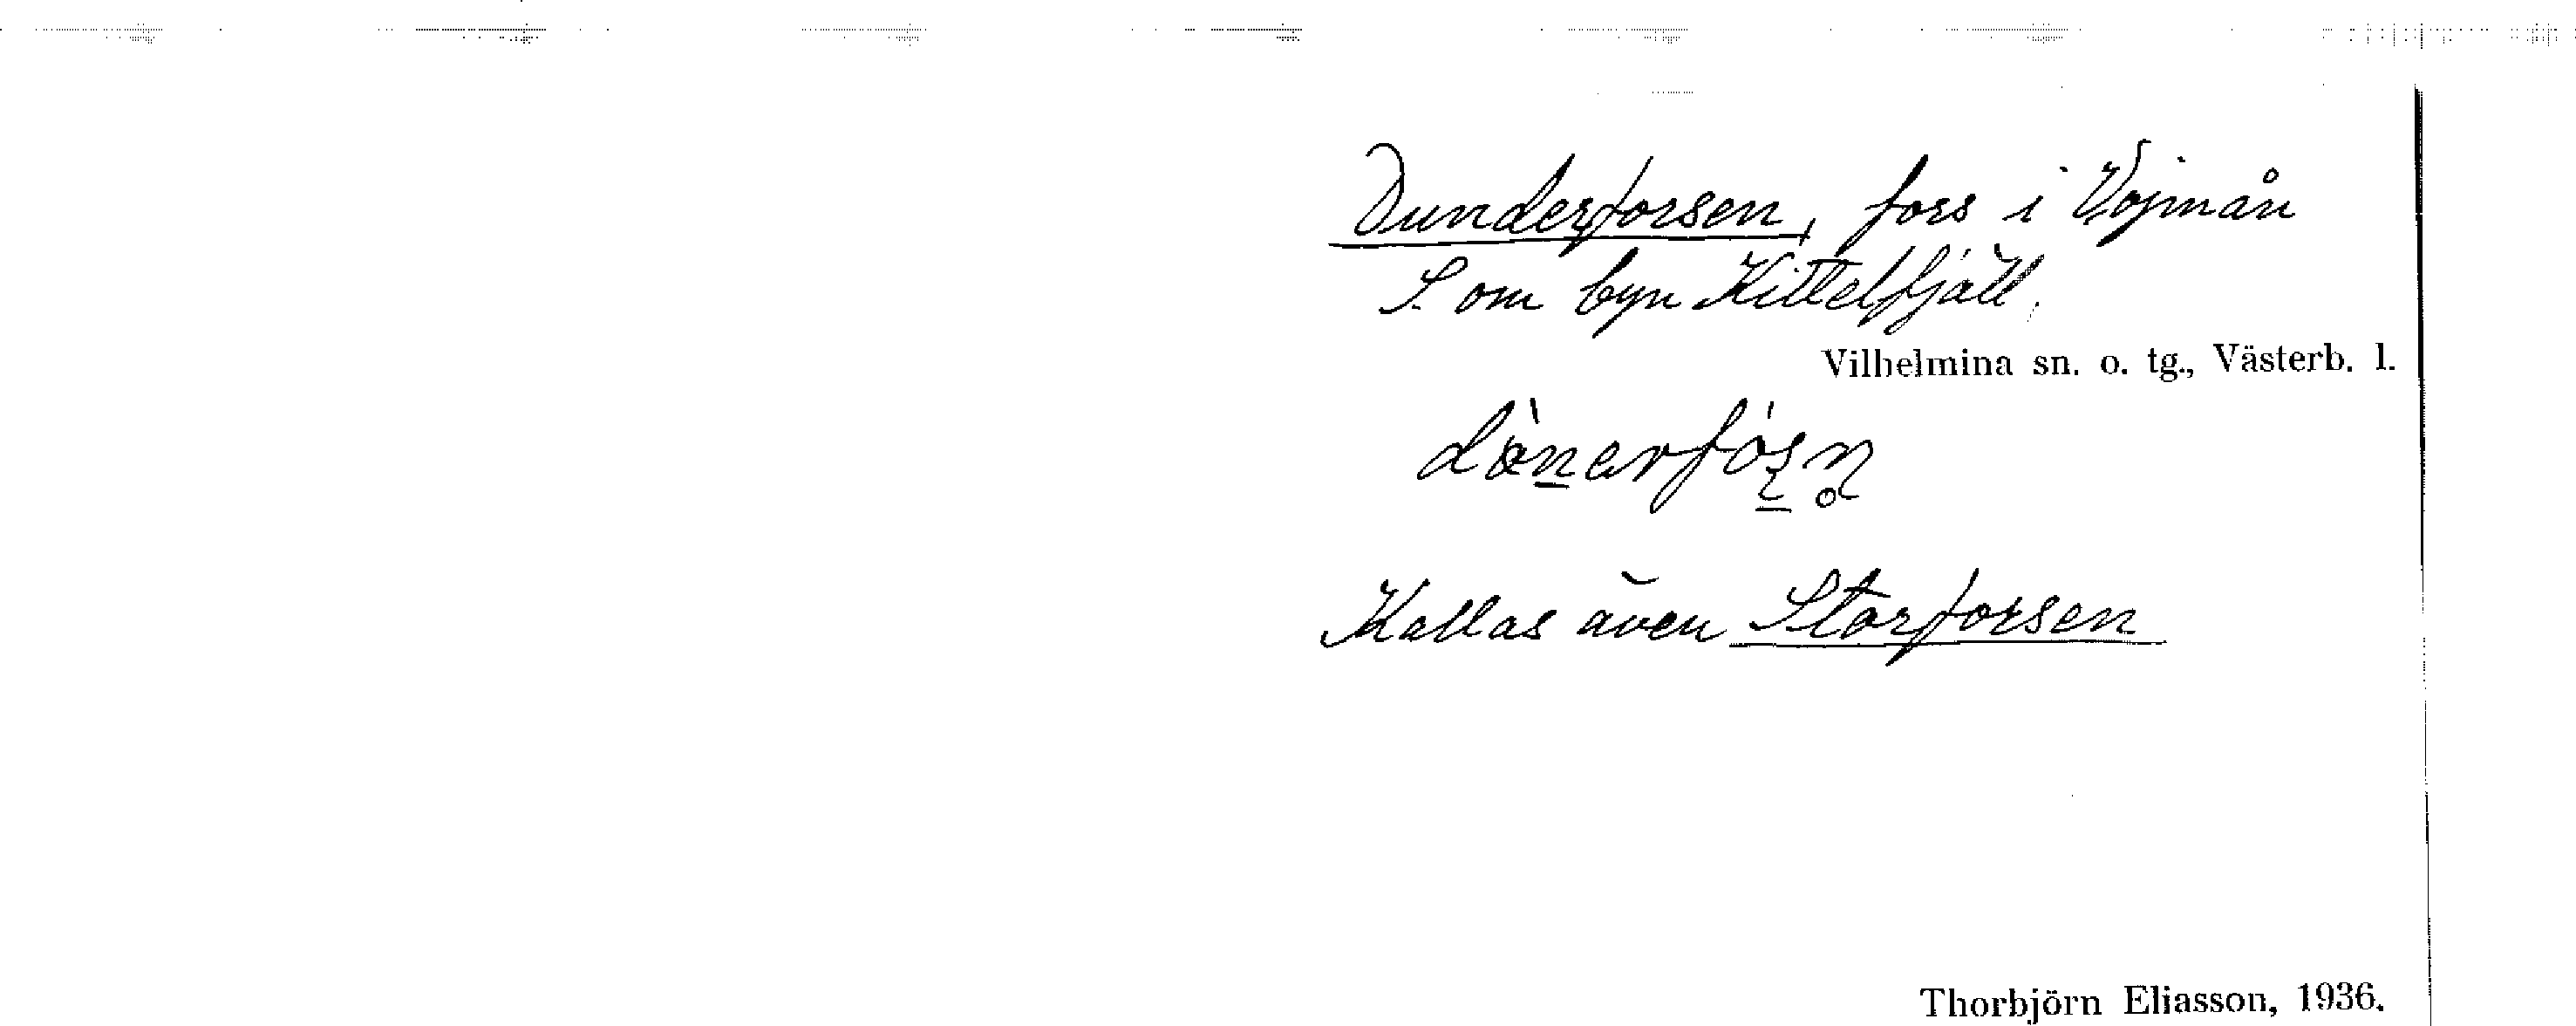 Dunderforsen, fors i Vojmån
S. om byn Kittelfjäll.
Vilhelmina sn. o. tg., Västerb. l.
Kallas även Storforsen
Thorbjörn Eliasson, 1936.